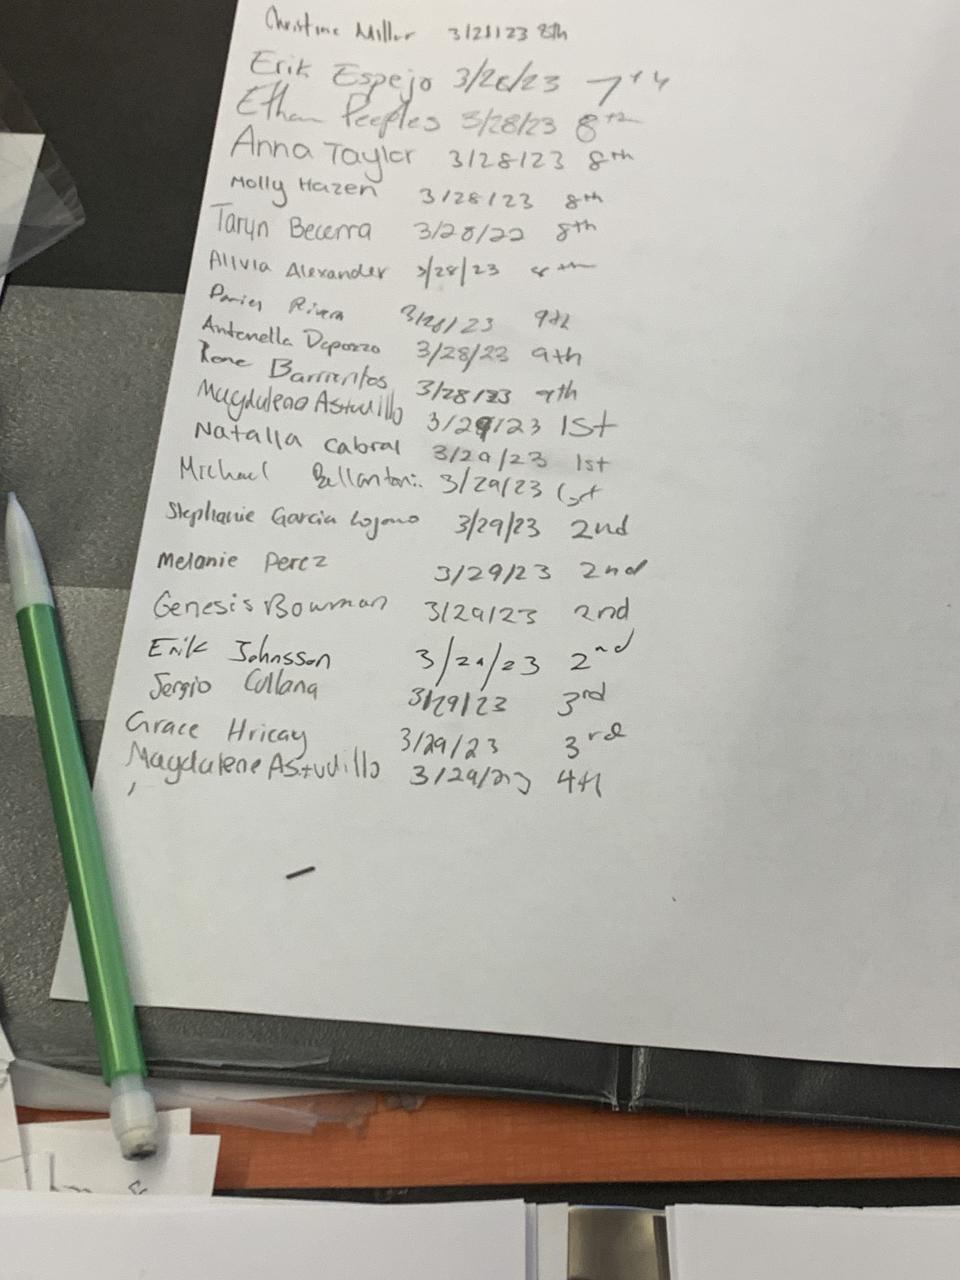 Christine Miller 3/28/23 8th
Erik Espejo 3/28/23 7th
Ethan Peeples 3/28/23 8th
Anna Taylor 3/28/23 8th
Molly Hazen 3/28/23 8th
Taryn Becerra 3/28/22 8th
Alivia Alexander 3/28/23 8th
Rivera 3/28/23 9th
Antonella Dapozzo 3/28/23 9th
Rene Barrientos 3/28/23 9th
Magdalena Astudillo 3/29/23 1st
Natalia Cabral 3/29/23 1st
Michael Bellantoni 3/29/23 1st
Stephanie Garcia Lozano 3/29/23 2nd
Melanie Perez 3/29/23 2nd
Genesis Bowman 3/29/23 2nd
Erik Johnsson 3/29/23 2nd
Sergio Collana 3/29/23 3rd
Grace Hricay 3/29/23 3rd
Magdalene Astudillo 3/29/23 4th